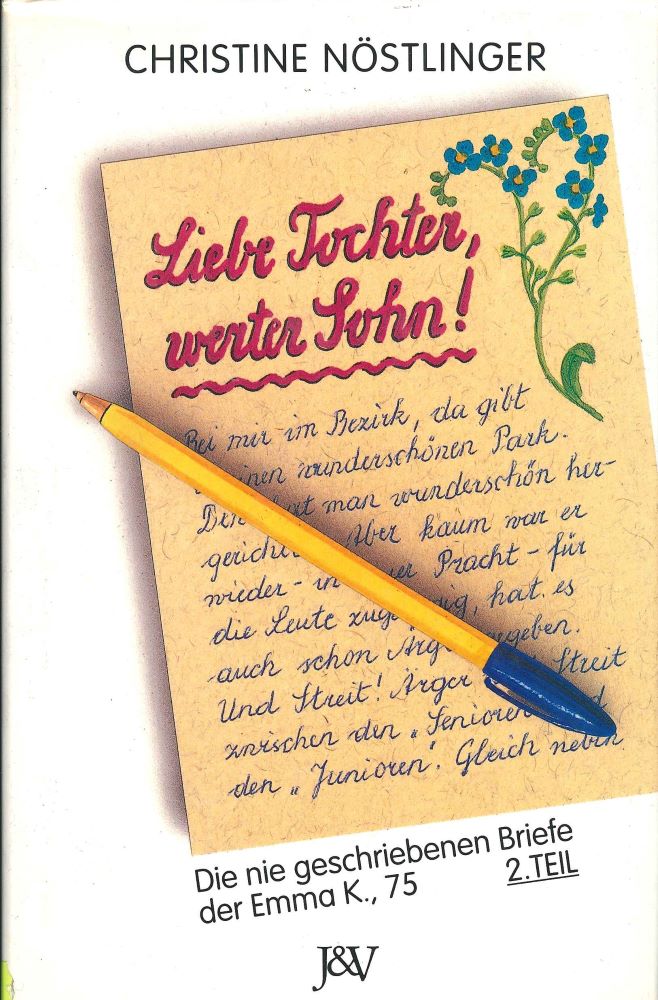 CHRISTINE NÖSTLINGER
Liebe Tochter,
werter Sohn!
Bei mir im Bezirk, da gibt
einen wunderschönen Park.
Den hat man wunderschön her-
gerichtet. Aber kaum war er
wieder - in Pracht - für
die Leute zugängig, hat es
auch schon Ärger gegeben.
Und Streit! Ärger Streit
zwischen den „Senioren"
den „Junioren". Gleich neben
Die nie geschriebenen Briefe
der Emma K., 75 2. TEIL
J&V